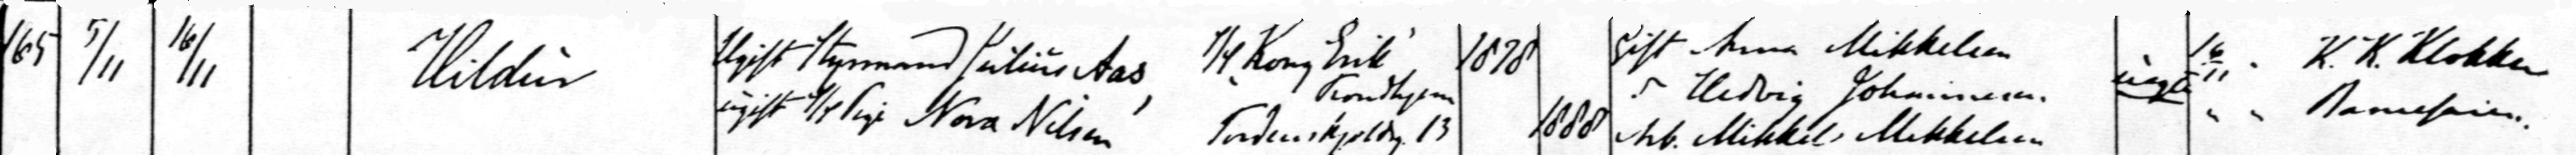 165 5/11 16/11 Hildur Ugift Styrmand Julius Aas, S/S "Kong Erik" 1878 Gift Anna Mikkelsen 16/11 " K. K. Klokker
ugift Pige Nora Nilsen Trondhjem " Hedvig Johannesen. uægte " " Barnepleien.
Tordenskjoldsg. 13 1888 Arb. Mikkel Mikkelsen